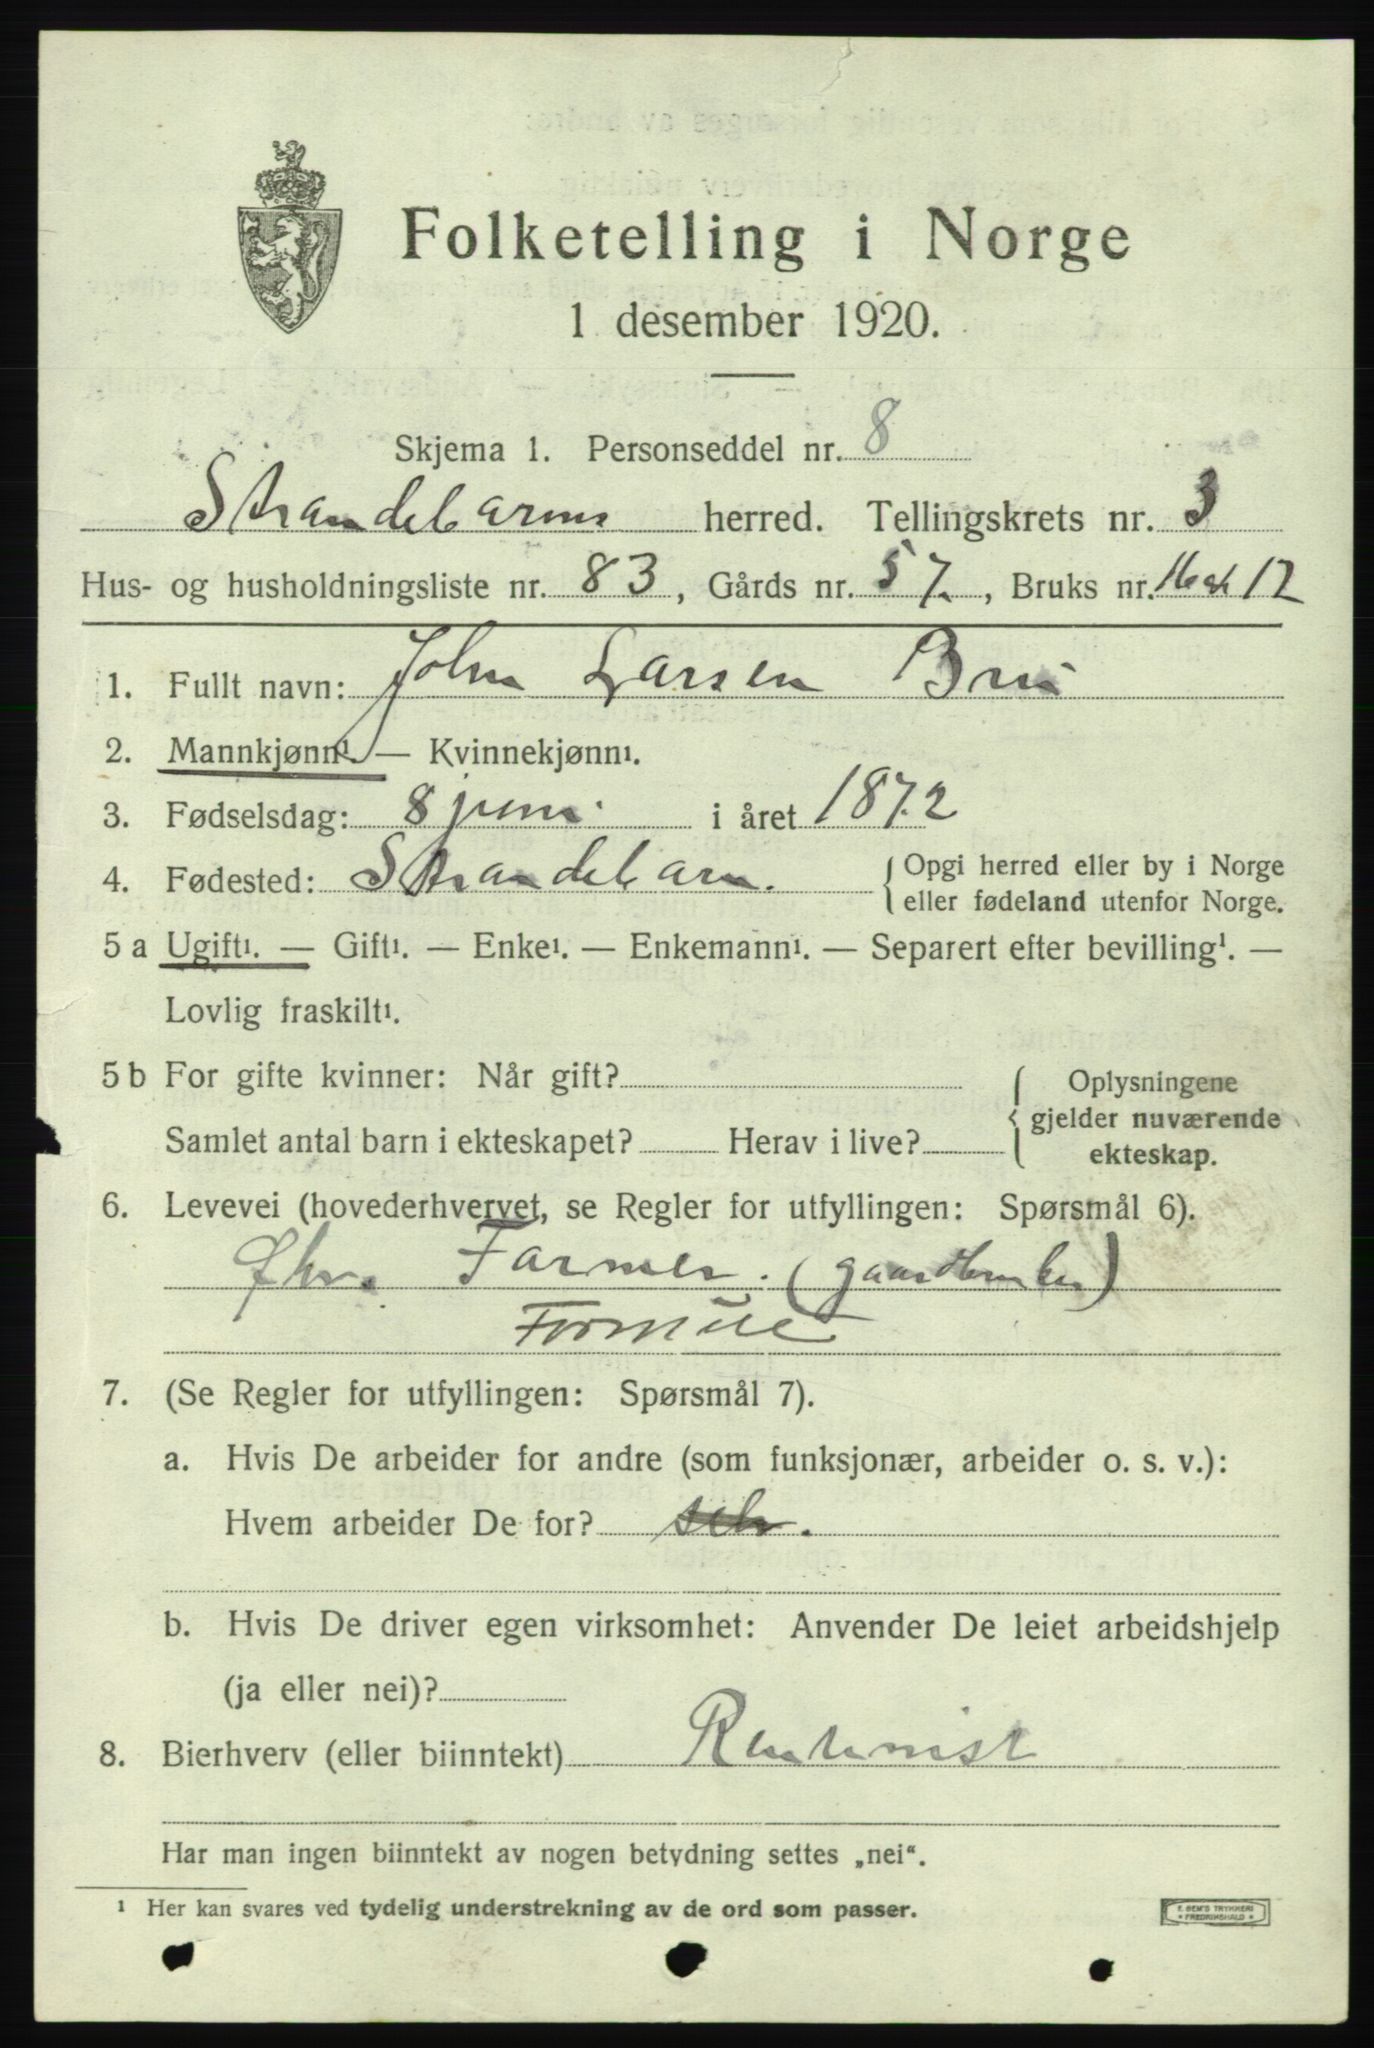 Folketelling i Norge
1 desember 1920.
Skjema 1. Personseddel nr. 8
Strandebarms herred. Tellingskrets nr. 3
Hus- og husholdningsliste nr. 83, Gårds nr. 57, Bruks nr. 16 ok 12
1. Fullt navn: John Larsen Bru
2. Mannkjønn¹ — Kvinnekjønn¹.
3. Fødselsdag: 8 juni i året 1872
4. Fødested: Strandebarm. Opgi herred eller by i Norge
eller fødeland utenfor Norge.
5 a Ugift¹. — Gift¹. — Enke¹. — Enkemann¹. — Separert efter bevilling¹. —
Lovlig fraskilt¹.
5 b For gifte kvinner: Når gift? Oplysningene
gjelder nuværende
Samlet antal barn i ekteskapet? Herav i live? ekteskap.
6. Levevei (hovederhvervet, se Regler for utfyllingen: Spørsmål 6).
fhv. Farmer. (gaardbruker)
Formue
7. (Se Regler for utfyllingen: Spørsmål 7).
a. Hvis De arbeider for andre (som funksjonær, arbeider o. s. v.):
Hvem arbeider De for?
b. Hvis De driver egen virksomhet: Anvender De leiet arbeidshjelp
(ja eller nei)?
8. Bierhverv (eller biinntekt) Rentenist
Har man ingen biinntekt av nogen betydning settes „nei“.
¹ Her kan svares ved tydelig understrekning av de ord som passer.
E. SEM'S TRYKKERI
• FREDRIKSHALD •